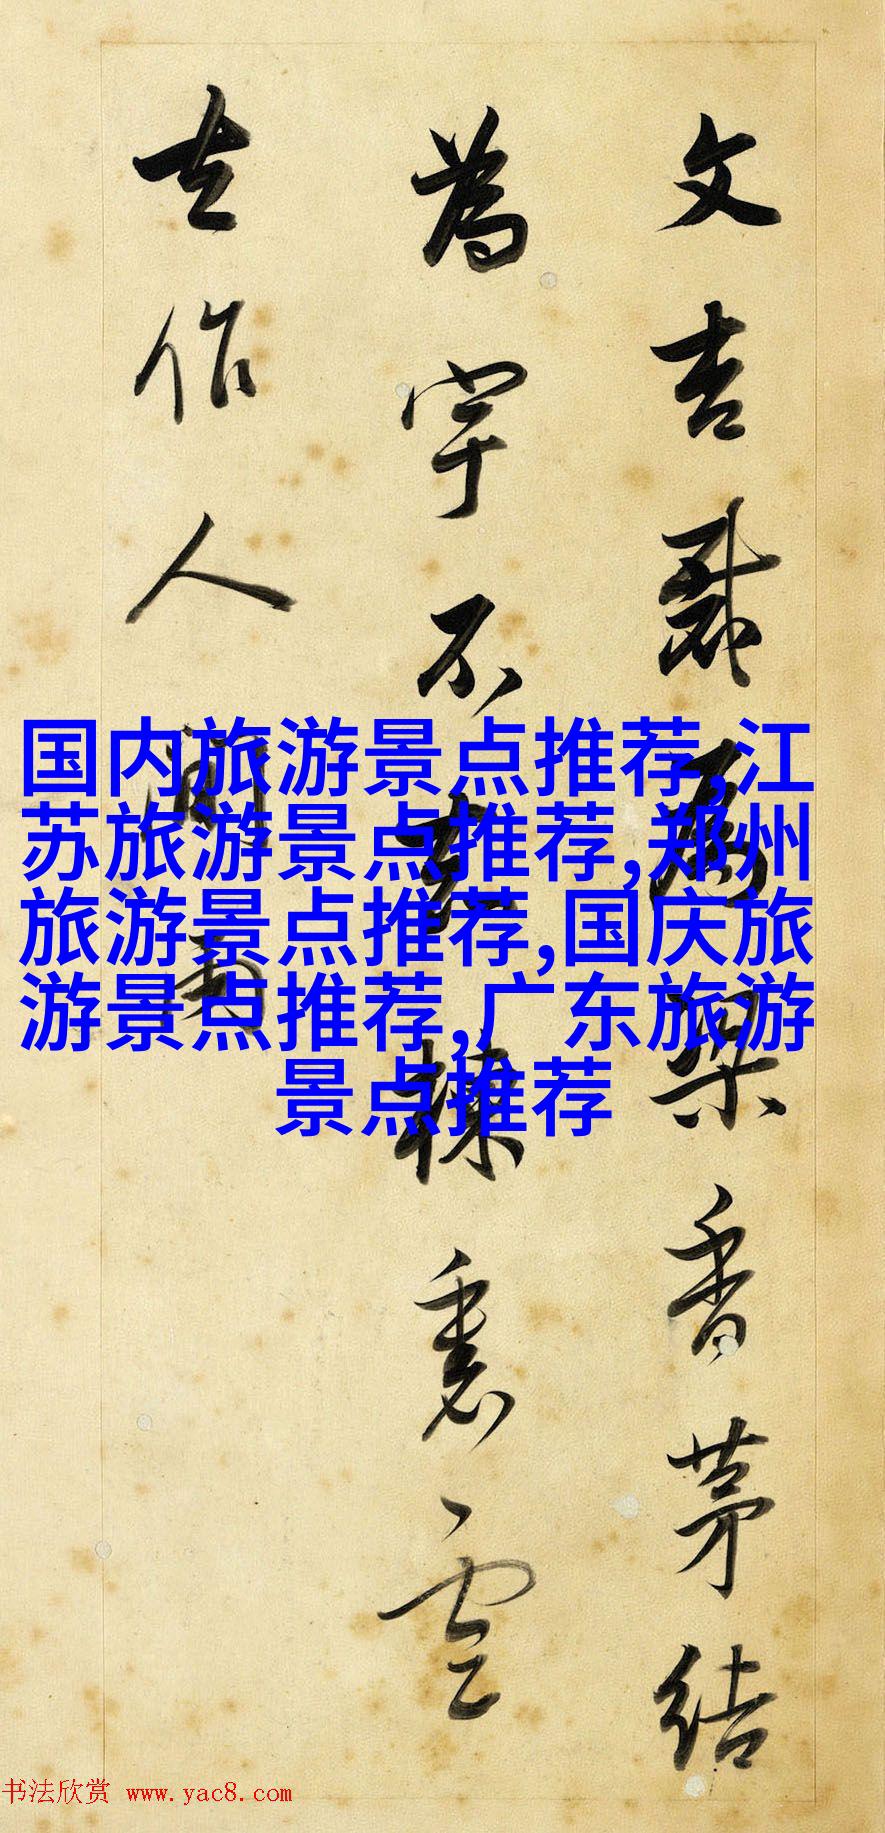 文吉裁为梁香茅结
为宇不知栋里云
去作人间雨
国内旅游景点推荐,江
苏旅游景点推荐,郑州
旅游景点推荐,国庆旅
游景点推荐,广东旅游
景点推荐
书法欣赏 www.yac8.com